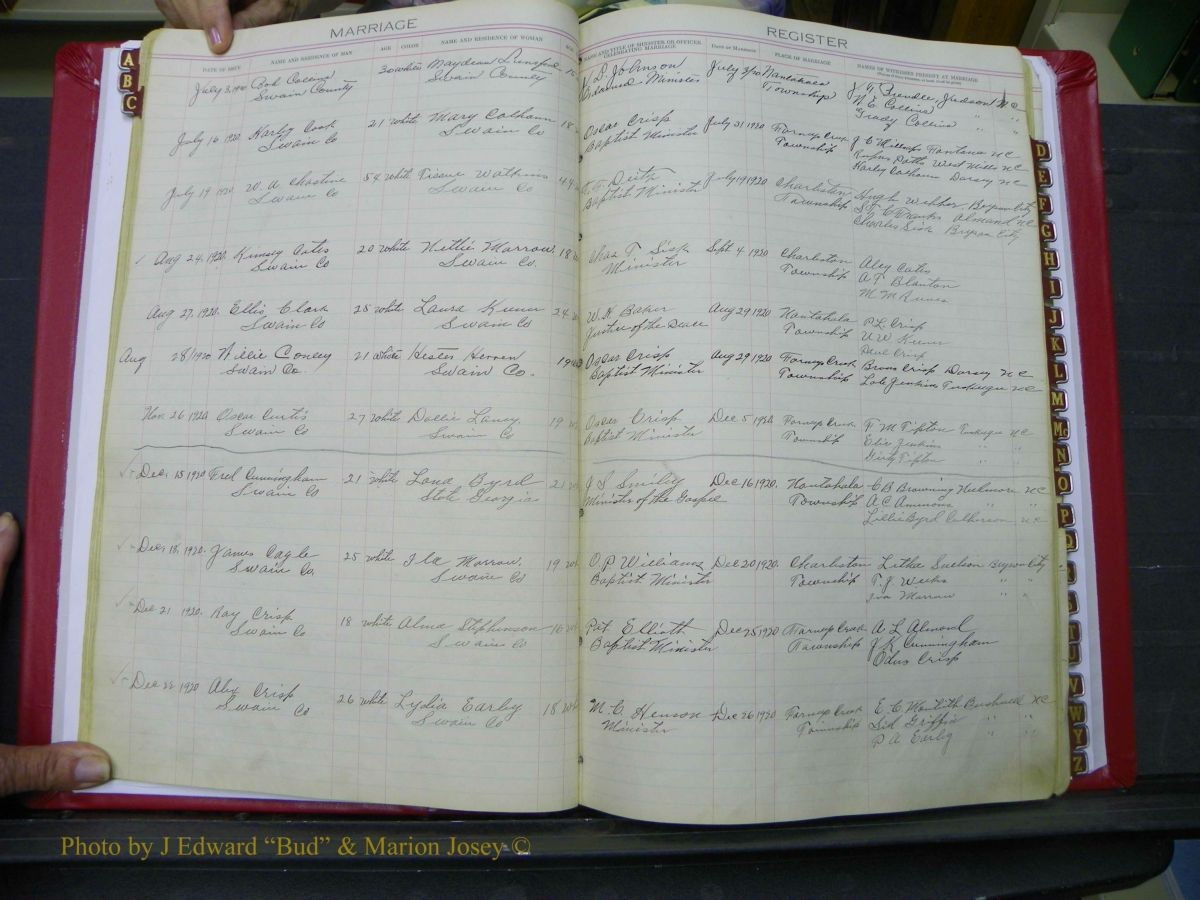 MARRIAGE REGISTER
DATE OF ISSUE NAME AND RESIDENCE OF MAN AGE COLOR NAME AND RESIDENCE OF WOMAN AGE NAME AND TITLE OF MINISTER OR OFFICER CELEBRATING MARRIAGE DATE OF MARRIAGE PLACE OF MARRIAGE NAMES OF WITNESSES PRESENT AT MARRIAGE
July 3, 1920 Bob Collins 30 white Maydean Johnson July Nantahala
Swain County Swain County Minister Township N E Collins
Grady Collins " "
July 16 1920 Harley Cook 21 white Mary Calhoun 18 Oscar Crisp July 31 1920 Forneys Creek Fontana NC
Swain Co Swain Co Baptist Minister Township West Mills NC
Harley Calhoun Dorsey NC
July 19 1920 W. A. Chastine 54 white Watkins 44 July 19 1920 Charleston Hugh Webber Bryson City
Swain Co Swain Co Baptist Minister Township Almond NC
Charles Sisk Bryson City
Aug 24, 1920. Kimsey Cates 20 white Nettie Marrow. 18 Chas T. Sisk Sept 4 1920 Charleston Aley Cates
Swain Co Swain Co. Minister Township A F Blanton
Aug 27. 1920. Ellis Clark 25 white Laura Kuner 24 W. H Baker Aug 29 1920 Nantahala P. L. Crisp
Swain Co Swain Co Justice of the Peace Township
Paul Crisp
Aug 28/1920 Willie Conley 21 white Hester Herren 19 Oscar Crisp Aug 29 1920 Forneys Creek Crisp Dorsey NC
Swain Co. Swain Co. Baptist Minister Township Jenkins Tuskegee NC
Nov. 26 1920 Oscar Curtis 27 white Dollie Laney 19 Oscar Crisp Dec 5 1920 Forneys Creek F M Tipton Tuskegee NC
Swain Co Swain Co Baptist Minister Township Jenkins
Tipton " "
Dec. 15 1920 Fred Cunningham 21 white Lona Byrd 21 J S Smiley Dec 16 1920. Nantahala C B Browning NC
Swain Co State Georgia Minister of the Gospel Township A C Ammons " "
Lillie Byrd Culberson NC
Dec. 18, 1920. James Cagle 25 white Ila Marrow. 19 O. P Williams Dec 20 1920. Charleston Letha Bryson City
Swain Co. Swain Co Baptist Minister Township T. J. Weeks " "
Iva Marrow " "
Dec 21 1920. Ray Crisp 18 white Alma Stephenson 16 Pat Elliott Dec 25 1920 Forneys Creek A L Almond
Swain Co Swain Co Baptist Minister Township J R Cunningham
Odus Crisp
Dec 22 1920 Alex Crisp 26 white Lydia Earley 18 M. C. Henson Dec 26 1920 Forneys Creek E C Bushnell NC
Swain Co Swain Co Minister Township Sid Griffin " "
P A Earley " "
A
B
C
D
E
F
G
H
I
J
K
L
M
N
O
P
Q
V
W
Y
Z
Photo by J Edward “Bud” & Marion Josey ©